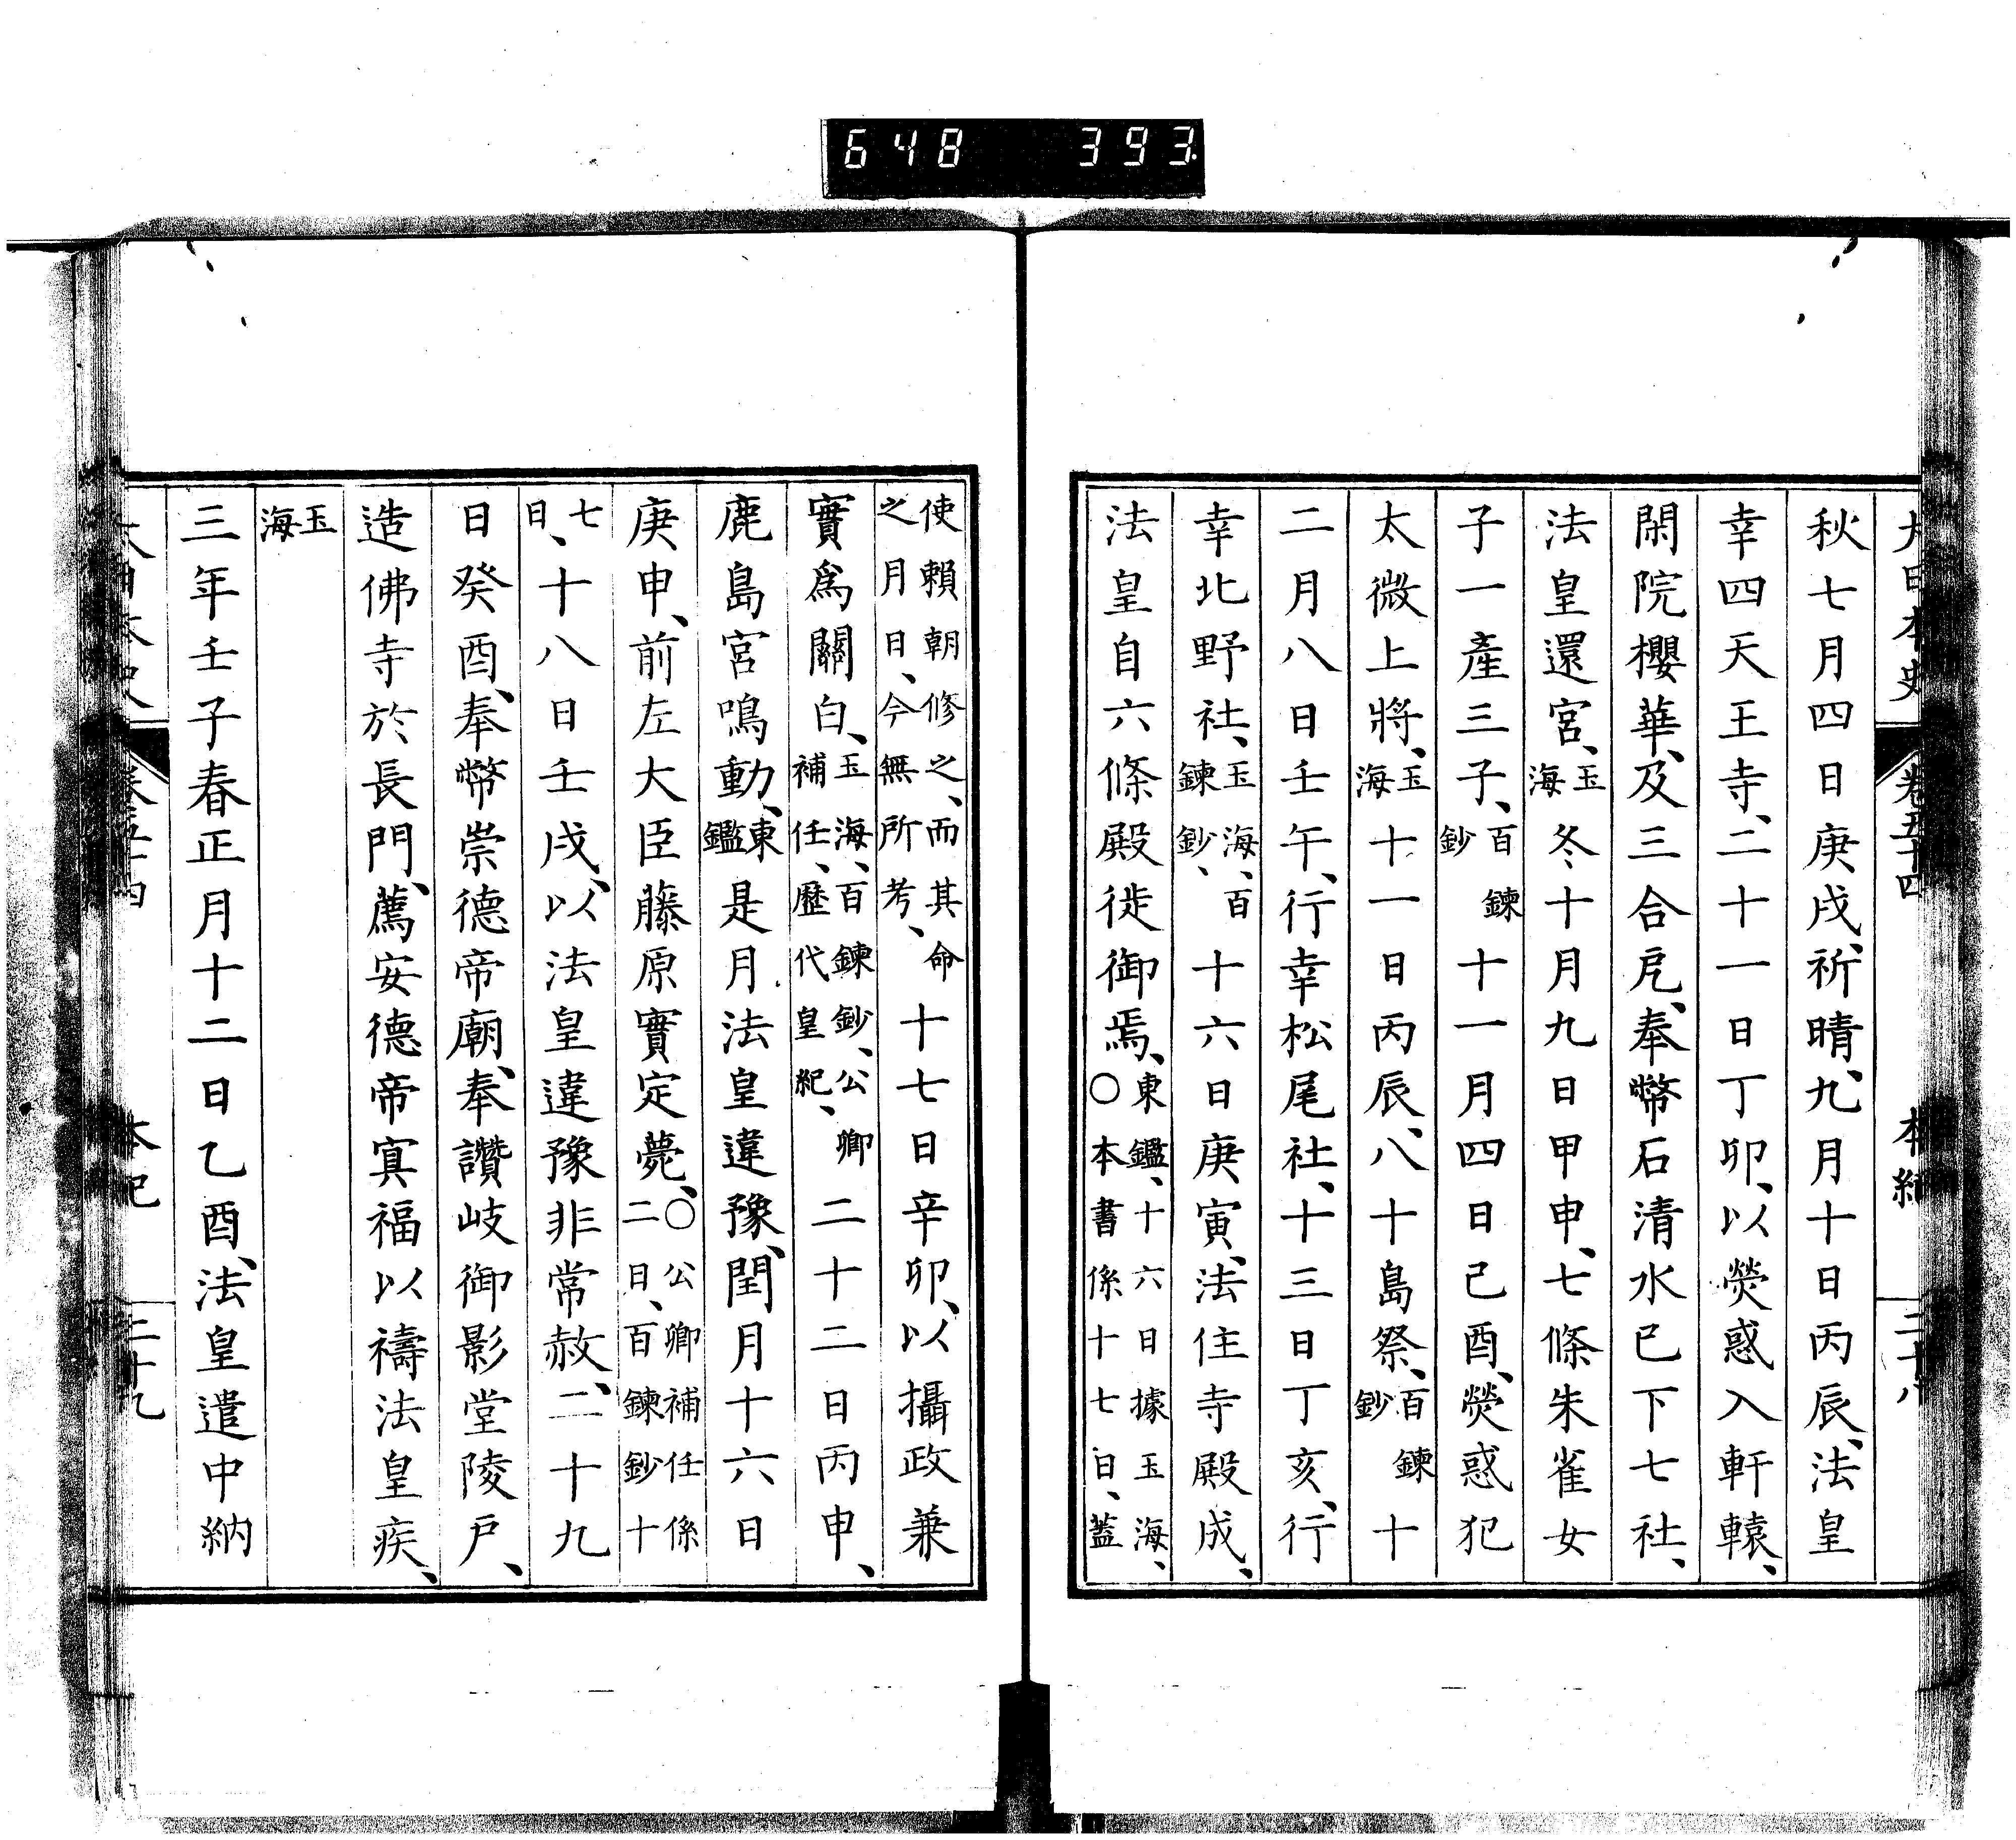 648 393.
大日本史 卷五十四 本紀 二十八
秋七月四日庚戌、祈晴、九月十日丙辰、法皇
幸四天王寺、二十一日丁卯、以熒惑入軒轅、
閑院櫻華、及三合戹、奉幣石清水已下七社、
法皇還宮、玉海冬十月九日甲申、七條朱雀女
子一產三子、百鍊鈔十一月四日己酉、熒惑犯
太微上將、玉海十一日丙辰、八十島祭、百鍊鈔十
二月八日壬午、行幸松尾社、十三日丁亥、行
幸北野社、玉海、百鍊鈔、十六日庚寅、法住寺殿成、
法皇自六條殿徙御焉、東鑑、十六日據玉海、○本書係十七日、蓋
使賴朝修之、而其命之月日、今無所考、十七日辛卯、以攝政兼
實爲關白、玉海、百鍊鈔、公卿補任、歷代皇紀、二十二日丙申、
鹿島宮鳴動、東鑑是月法皇違豫、閏月十六日
庚申、前左大臣藤原實定薨、○公卿補任係二日、百鍊鈔十
七日、十八日壬戌、以法皇違豫非常赦、二十九
日癸酉、奉幣崇德帝廟、奉讚岐御影堂陵戶、
造佛寺於長門、薦安德帝寘福以禱法皇疾、
玉海
三年壬子春正月十二日乙酉、法皇遣中納
大日本史 卷五十四 本紀 二十九